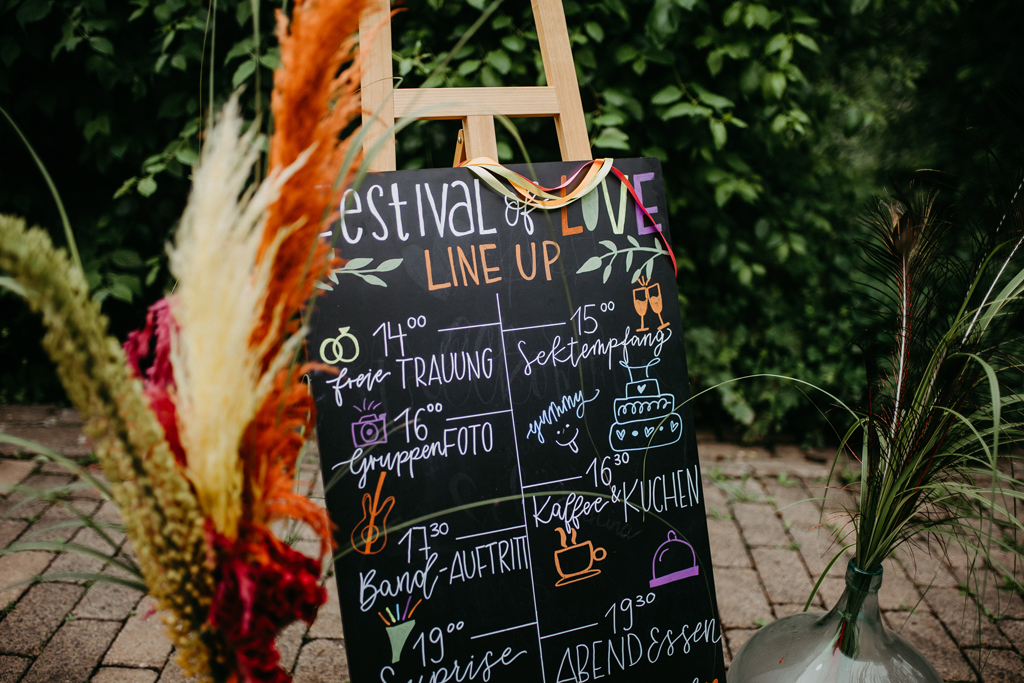 FESTIVAL of LOVE
LINE UP
14⁰⁰
freie TRAUUNG
15⁰⁰
Sektempfang
16⁰⁰
GruppenFOTO
yummy
16³⁰
Kaffee & KUCHEN
17³⁰
Band-AUFTRITT
19⁰⁰
Surprise
19³⁰
ABENDEssen